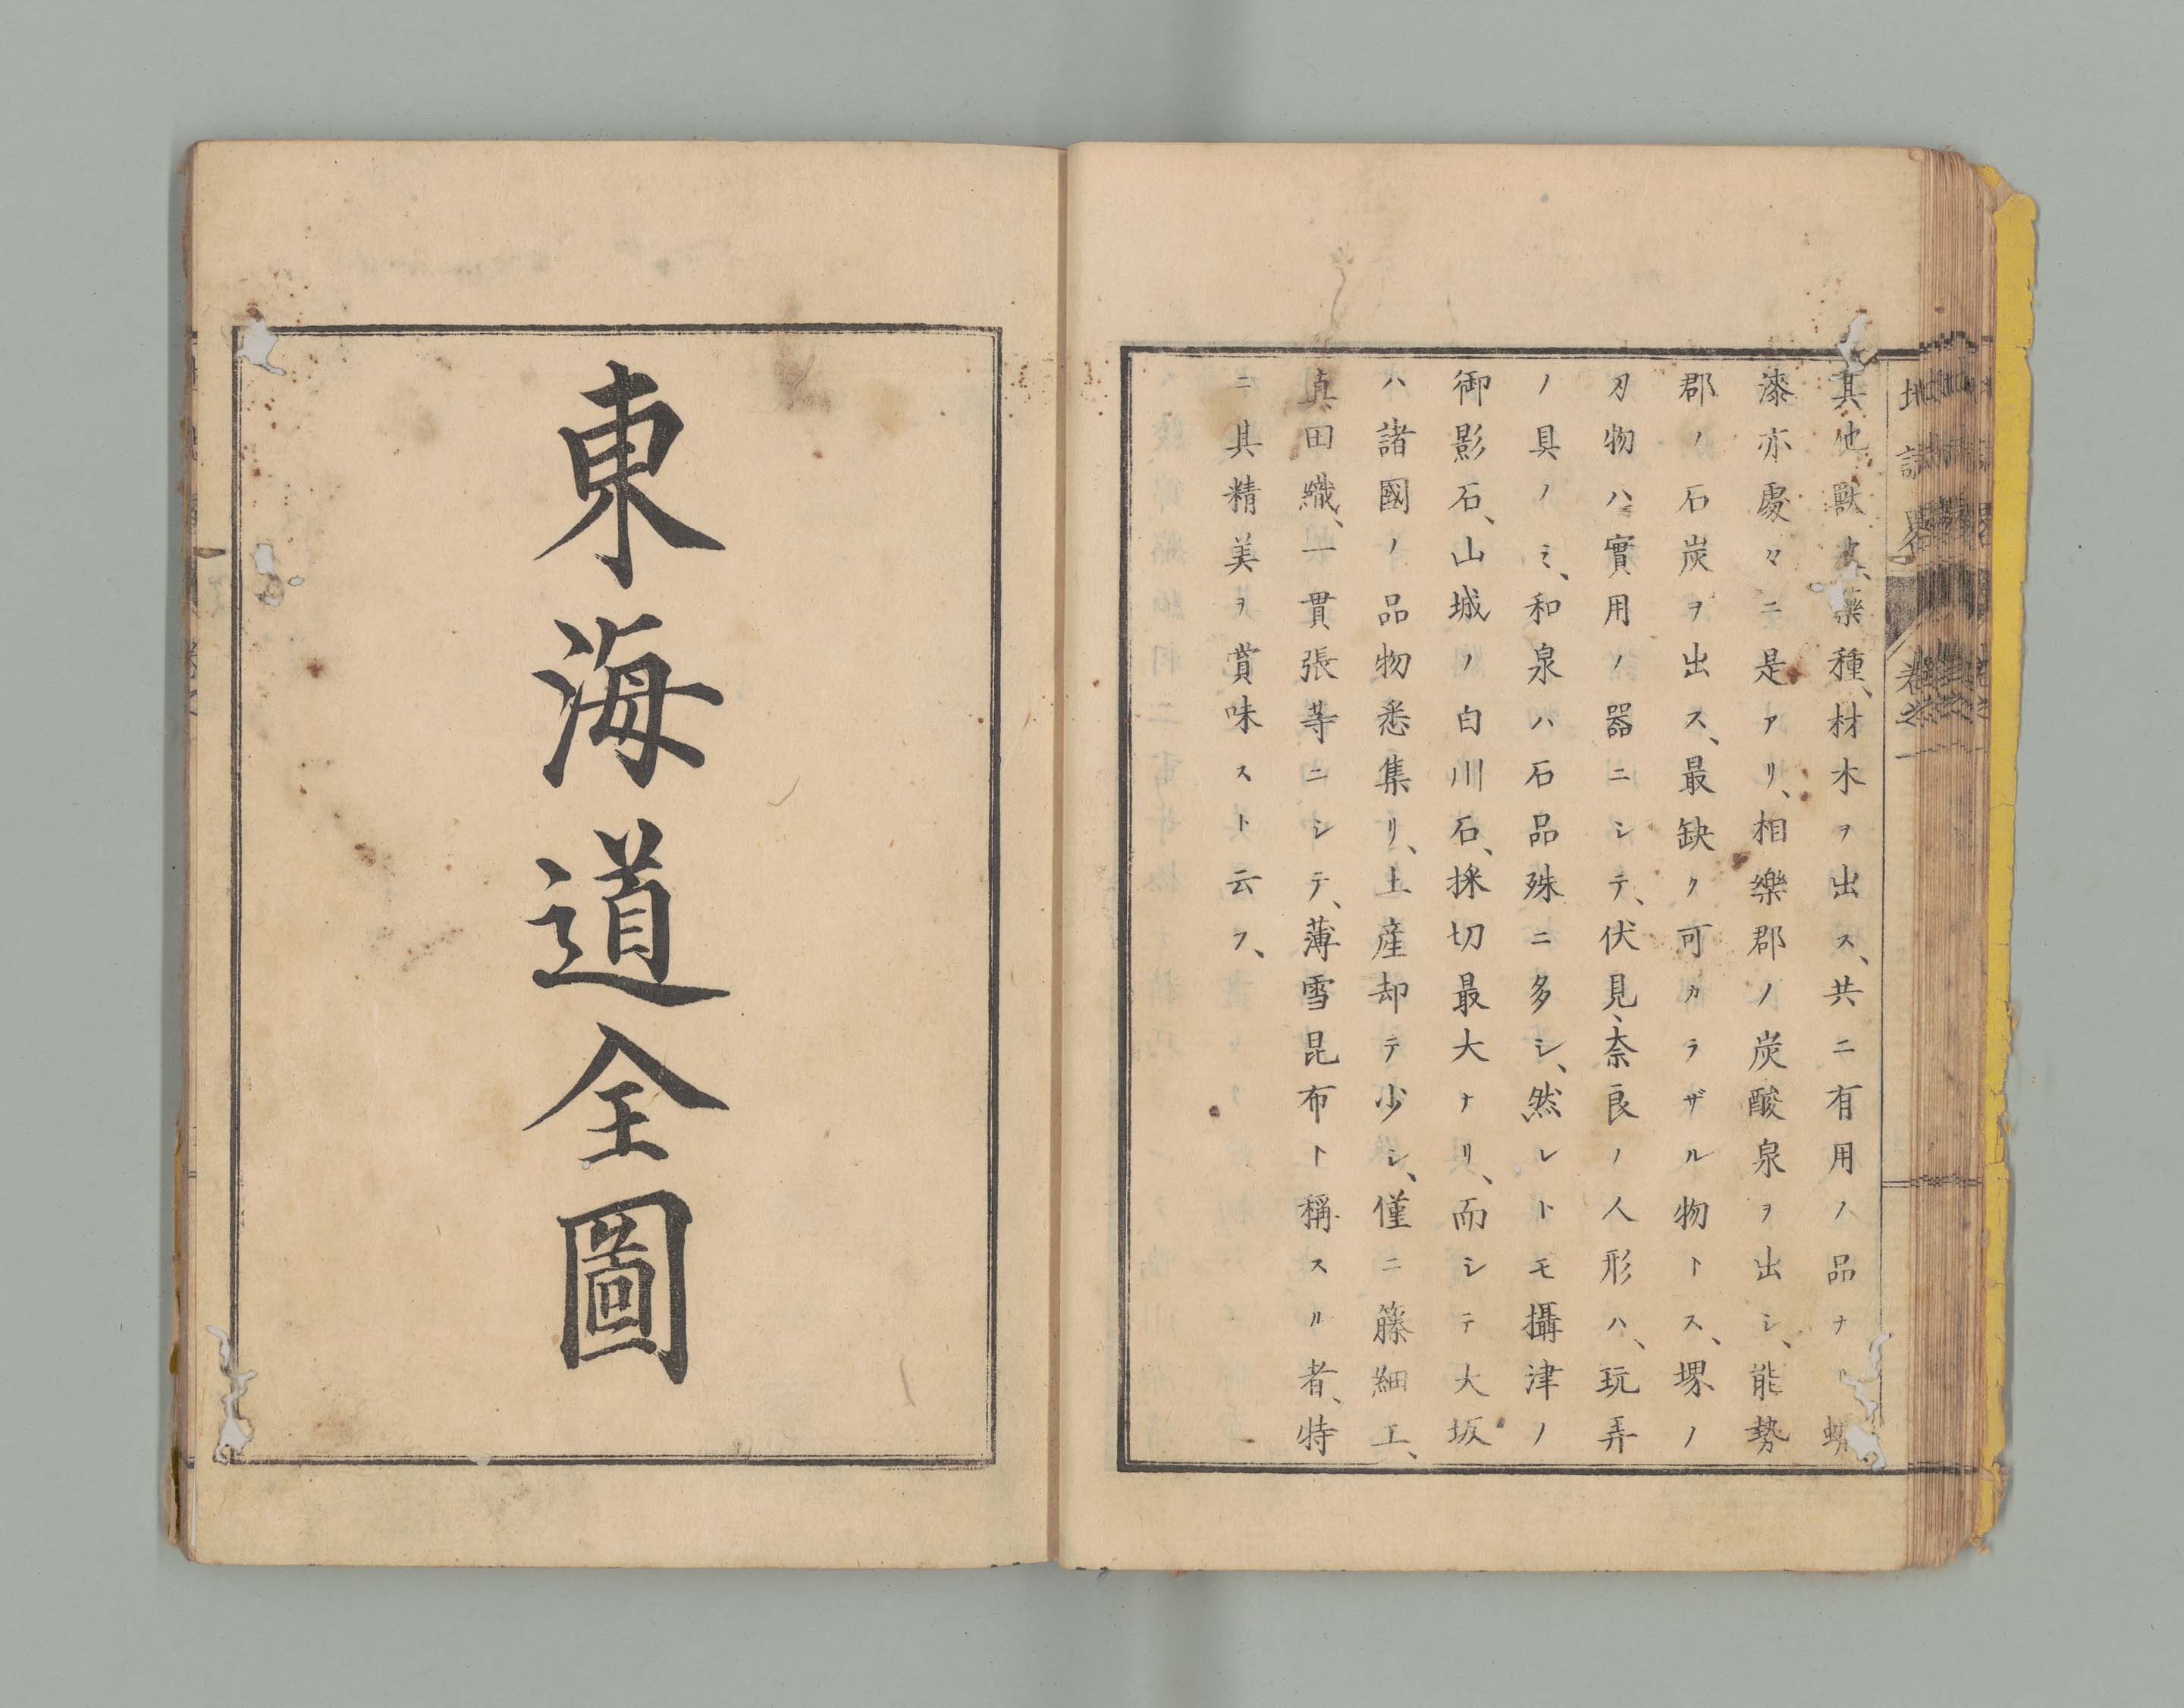 地誌畧
卷之一
其他獸皮、藥種、材木ヲ出ス、共ニ有用ノ品ナリ
漆亦處々ニ是アリ、相樂郡ノ炭酸泉ヲ出シ、能勢
郡ノ石炭ヲ出ス、最缺ク可カラザル物トス、堺ノ
刃物ハ實用ノ器ニシテ、伏見、奈良ノ人形ハ、玩弄
ノ具ノミ、和泉ハ石品殊ニ多シ、然レトモ攝津ノ
御影石、山城ノ白川石、採切最大ナリ、而シテ大坂
ハ諸國ノ品物悉集リ、土産却テ少シ、僅ニ籐細工、
真田織、一貫張等ニシテ、薄雪昆布ト稱スル者、特
ニ其精美ヲ賞味スト云フ、
東海道全圖